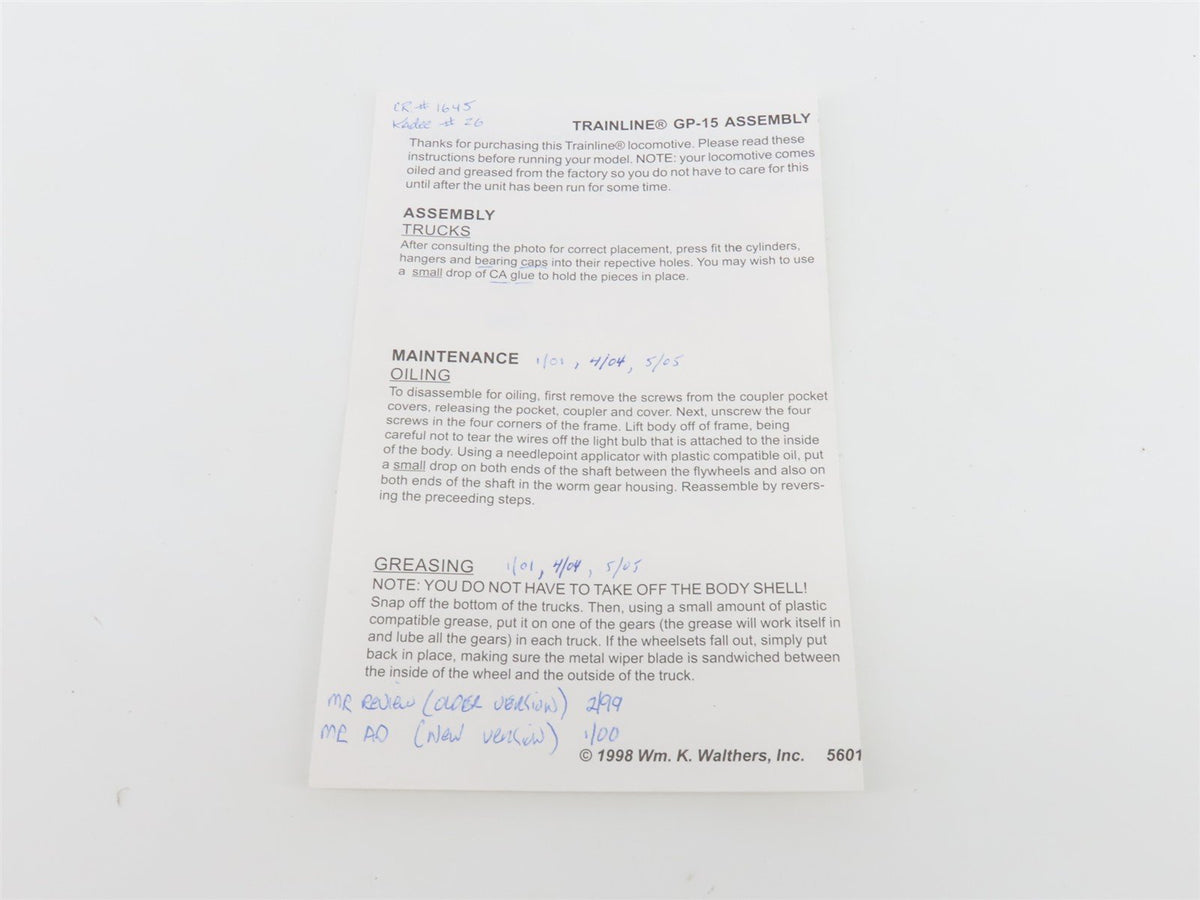 CR # 1645
Kadee # 26
TRAINLINE® GP-15 ASSEMBLY
Thanks for purchasing this Trainline® locomotive. Please read these
instructions before running your model. NOTE: your locomotive comes
oiled and greased from the factory so you do not have to care for this
until after the unit has been run for some time.
ASSEMBLY
TRUCKS
After consulting the photo for correct placement, press fit the cylinders,
hangers and bearing caps into their repective holes. You may wish to use
a small drop of CA glue to hold the pieces in place.
MAINTENANCE 1/01, 4/04, 5/05
OILING
To disassemble for oiling, first remove the screws from the coupler pocket
covers, releasing the pocket, coupler and cover. Next, unscrew the four
screws in the four corners of the frame. Lift body off of frame, being
careful not to tear the wires off the light bulb that is attached to the inside
of the body. Using a needlepoint applicator with plastic compatible oil, put
a small drop on both ends of the shaft between the flywheels and also on
both ends of the shaft in the worm gear housing. Reassemble by revers-
ing the preceeding steps.
GREASING 1/01, 4/04, 5/05
NOTE: YOU DO NOT HAVE TO TAKE OFF THE BODY SHELL!
Snap off the bottom of the trucks. Then, using a small amount of plastic
compatible grease, put it on one of the gears (the grease will work itself in
and lube all the gears) in each truck. If the wheelsets fall out, simply put
back in place, making sure the metal wiper blade is sandwiched between
the inside of the wheel and the outside of the truck.
MR REVIEW (OLDER VERSION) 2/99
MR AD (NEW VERSION) 1/00
© 1998 Wm. K. Walthers, Inc. 5601